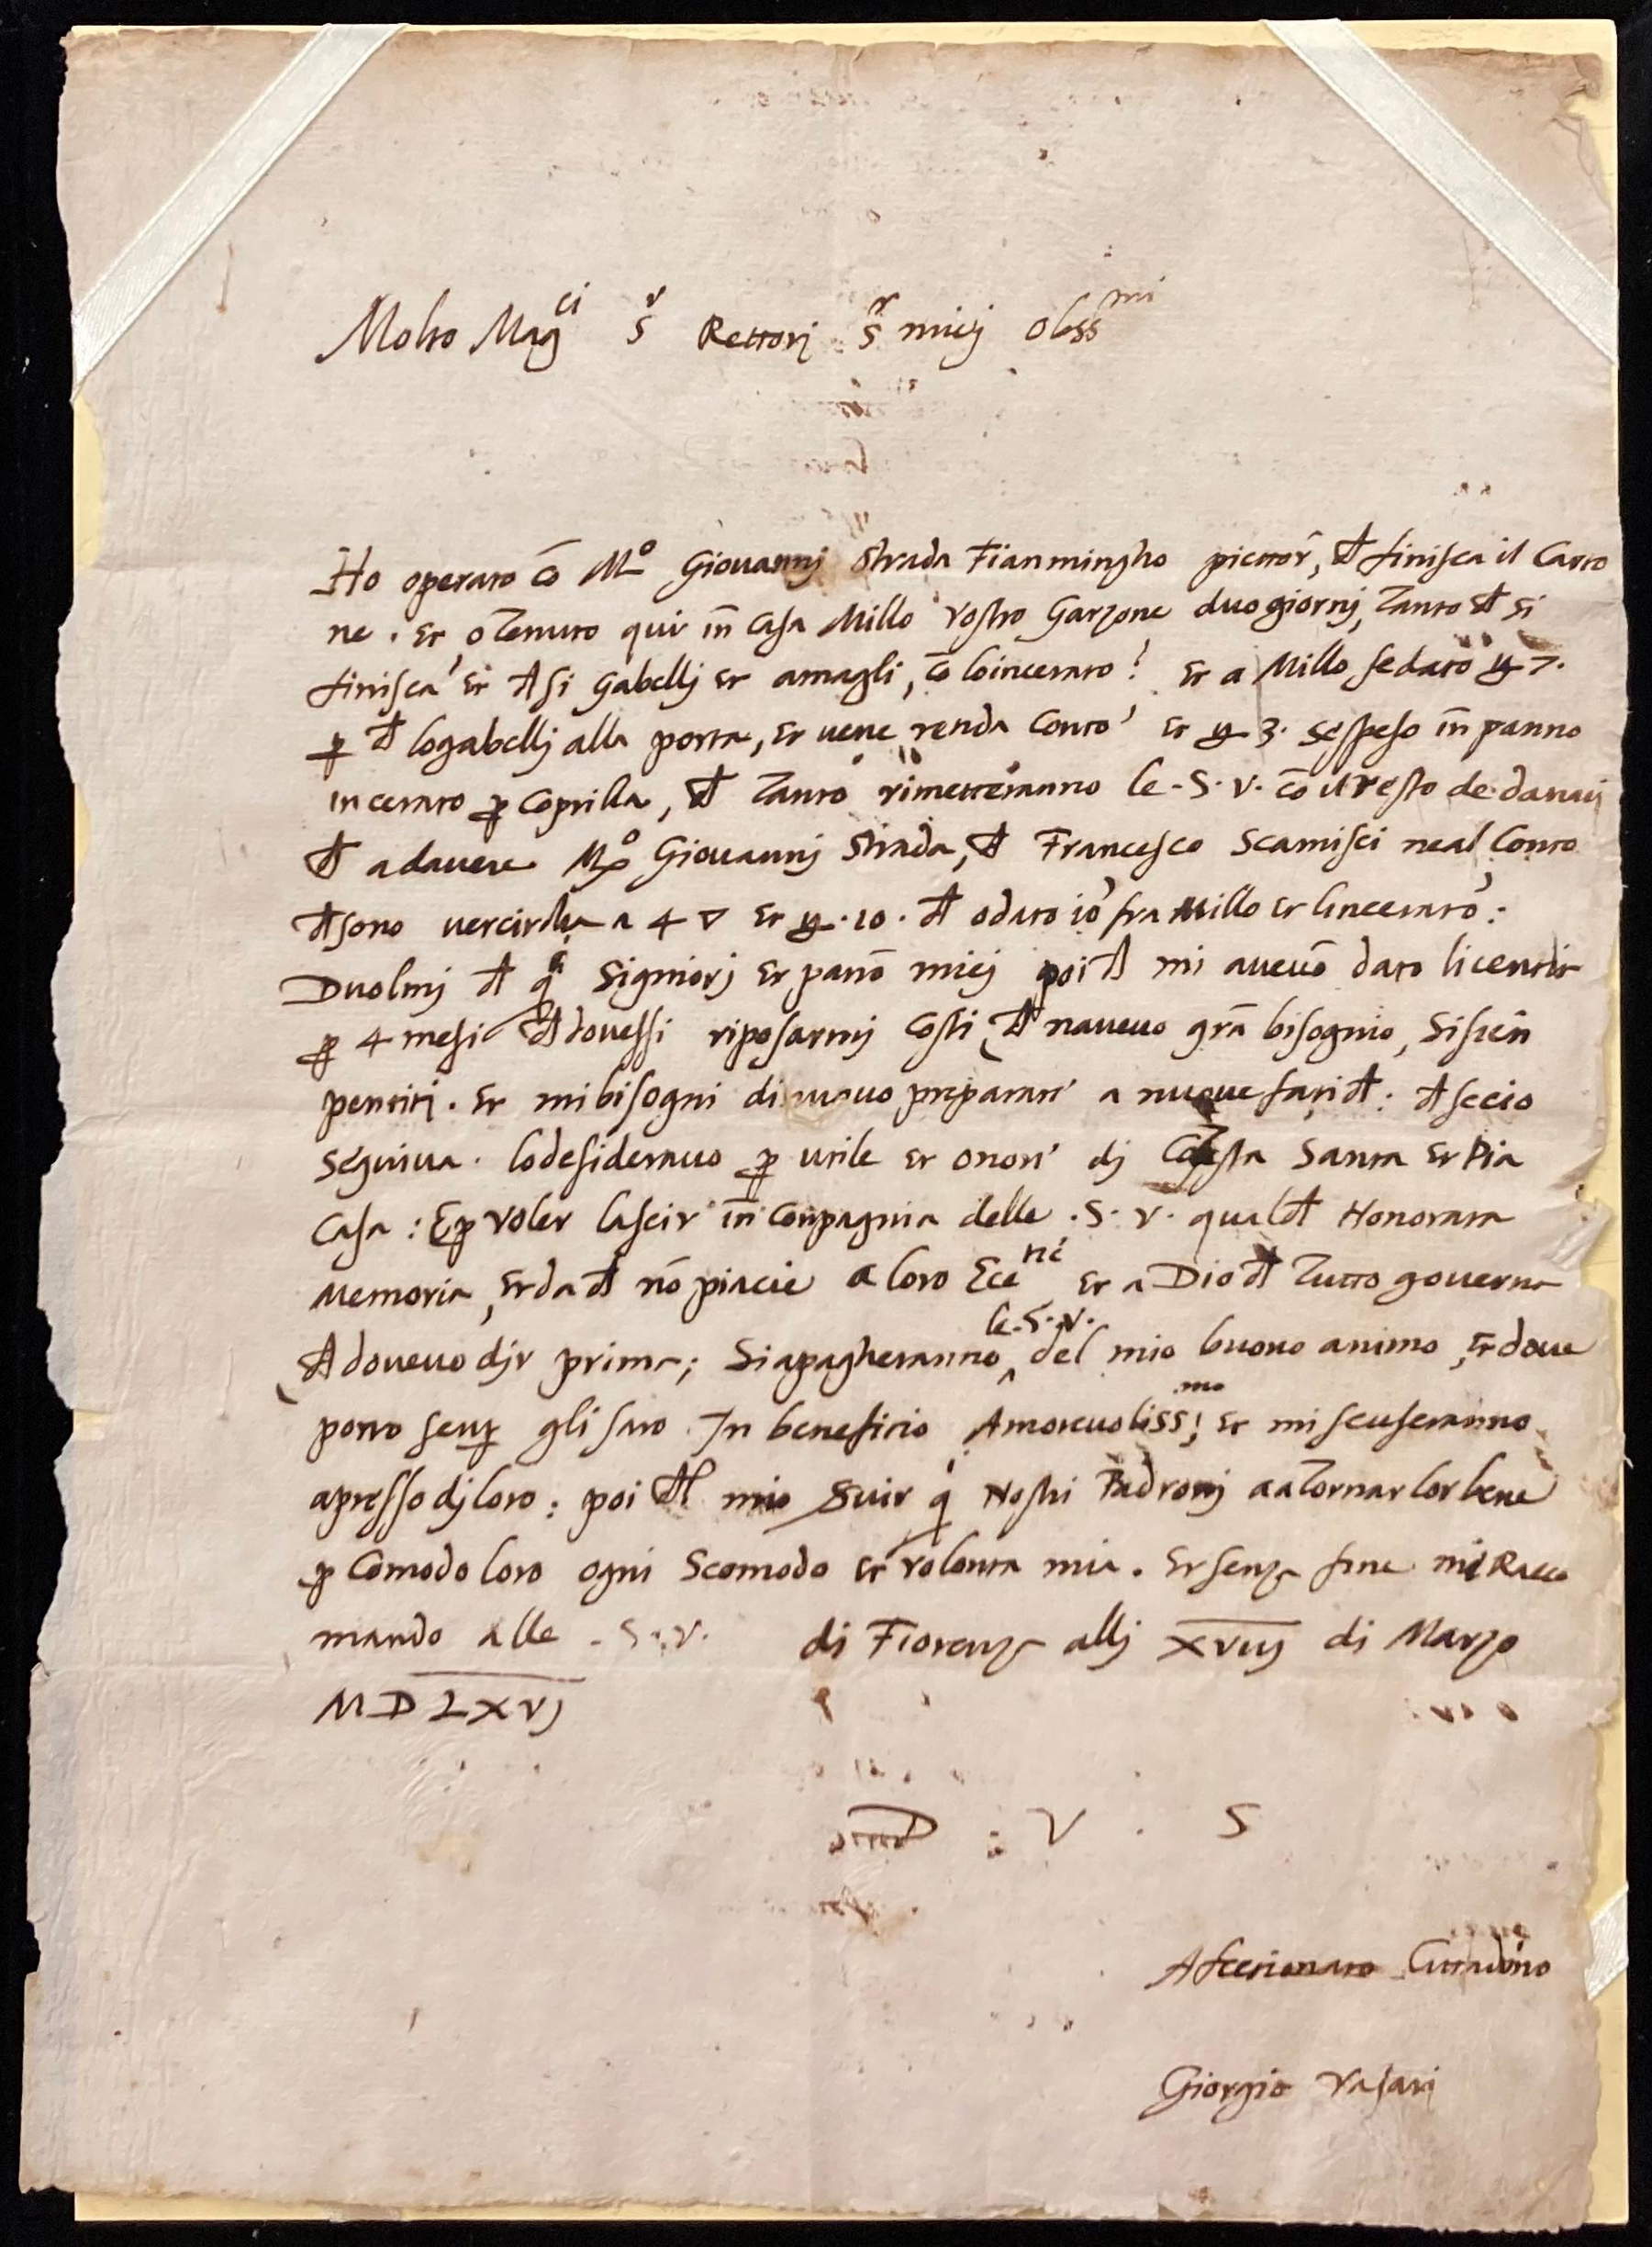 Molto Mag^ci S^r Rettorj S^r miej obss^mi
Ho operato cō M^o Giouannj Strada Fianmingho pictor, ch finisca il Carto
ne . et o tenuto qui in casa Millo vostro Garzone duo giornj, tanto ch si
finisca et ch si gabellj et amagli, cō lo incerato: et a Millo se dato 7.
p ch lo gabellj alla porta, et uene renda conto et 3. se speso in panno
incerato p coprilla, ch tanto rimetteranno le .S.V. cō il resto de danari
ch a dauere M^o Giouannj Strada, ch Francesco Scamisci neal conto
ch sono a 4 et .10. ch o dato io fra Millo et lincerato:
Duolmj ch q^i Signiorj et miej poi ch mi aueuō dato licentia
p 4 mesi ch douessi riposarmj costi, ch naueuo grā bisognio, si sien
pentiti . et mi bisogni di nuouo preparare a nuoue fatich: ch se cio
seguiua . lo desiderauo p utile et onore dj Santa et Pia
Casa : Ep voler lascir in conpagnia delle .S.V. qualch Honorata
Memoria, et da ch nō piacie a loro Ecc^ntie et a Dio ch tutto gouerna
ch doueuo djr prima; si apagheranno le.S.V. del mio buono animo, et doue
potro senp gli saro In beneficio Amoreuoliss^mo et mi scuseranno
apresso dj loro: poi chl mio suir q^i Nostri Padronj a a tornar lor bene
p comodo loro ogni scomodo et volonta mia . et senza fine mi Racco
mando alle .S.V. di Fiorenza allj XVIIJ di Marzo
MDLXVJ
D . V . S
Afectionato Cittadino
Giorgio Vasarj